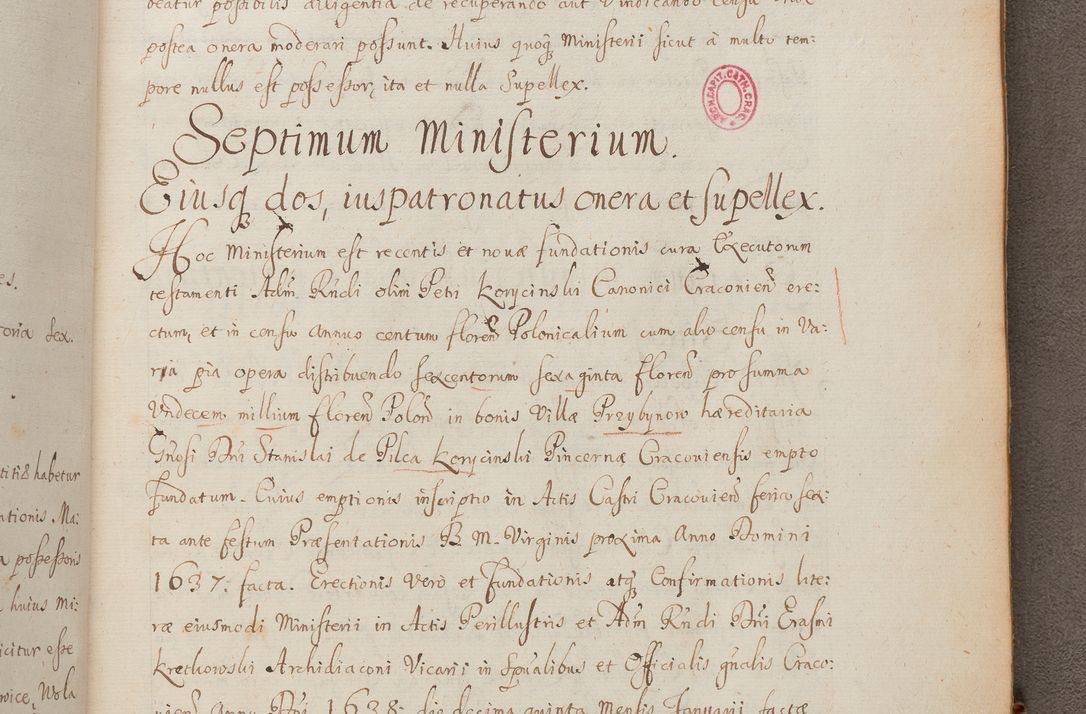 beatur possibilis diligentia de recuperando aut vindicando censu
postea onera moderari possunt. Huius quoq Ministerii sicut à multo tem:
pore nullus est possessor, ita et nulla supellex.
Septimum Ministerium.
Eiusq dos, iuspatronatus onera et supellex.
Hoc Ministerium est recentis et novæ fundationis cura Executorum
testamenti Adm Rndi olim Petri Korycinski Canonici Cracovien ere:
ctum, et in censu annuo centum floren Polonicalium cum alio censu in va:
ria pia opera distribuendo sexcentorum sexaginta floren pro summa
Undecem millium floren Polon in bonis Villæ Przybynow hæreditaria
Gnosi Dni Stanislai de Pilca Korycinski Pincernæ Cracoviensis empto
fundatum. Cuius emptionis inscriptio in Actis Castri Cracovien feria sex:
ta ante festum Præsentationis B. M. Virginis proxima Anno Domini
1637. facta. Erectionis vero et fundationis atq Confirmationis lite:
ræ eiusmodi Ministerii in Actis Perillustris et Adm Rndi Dni Erasmi
Kretkowski Archidiaconi Vicarii in Spualibus et Officialis gnalis Craco:
vien Anno Dni 1638. die decima quinta Mensis Januarii factæ
es.
toria sex.
habetur
ationis Ma:
possessoris
huius Mi:
icitur esse
wice, Wola
ARCH. CAPIT. CATH. CRAC.